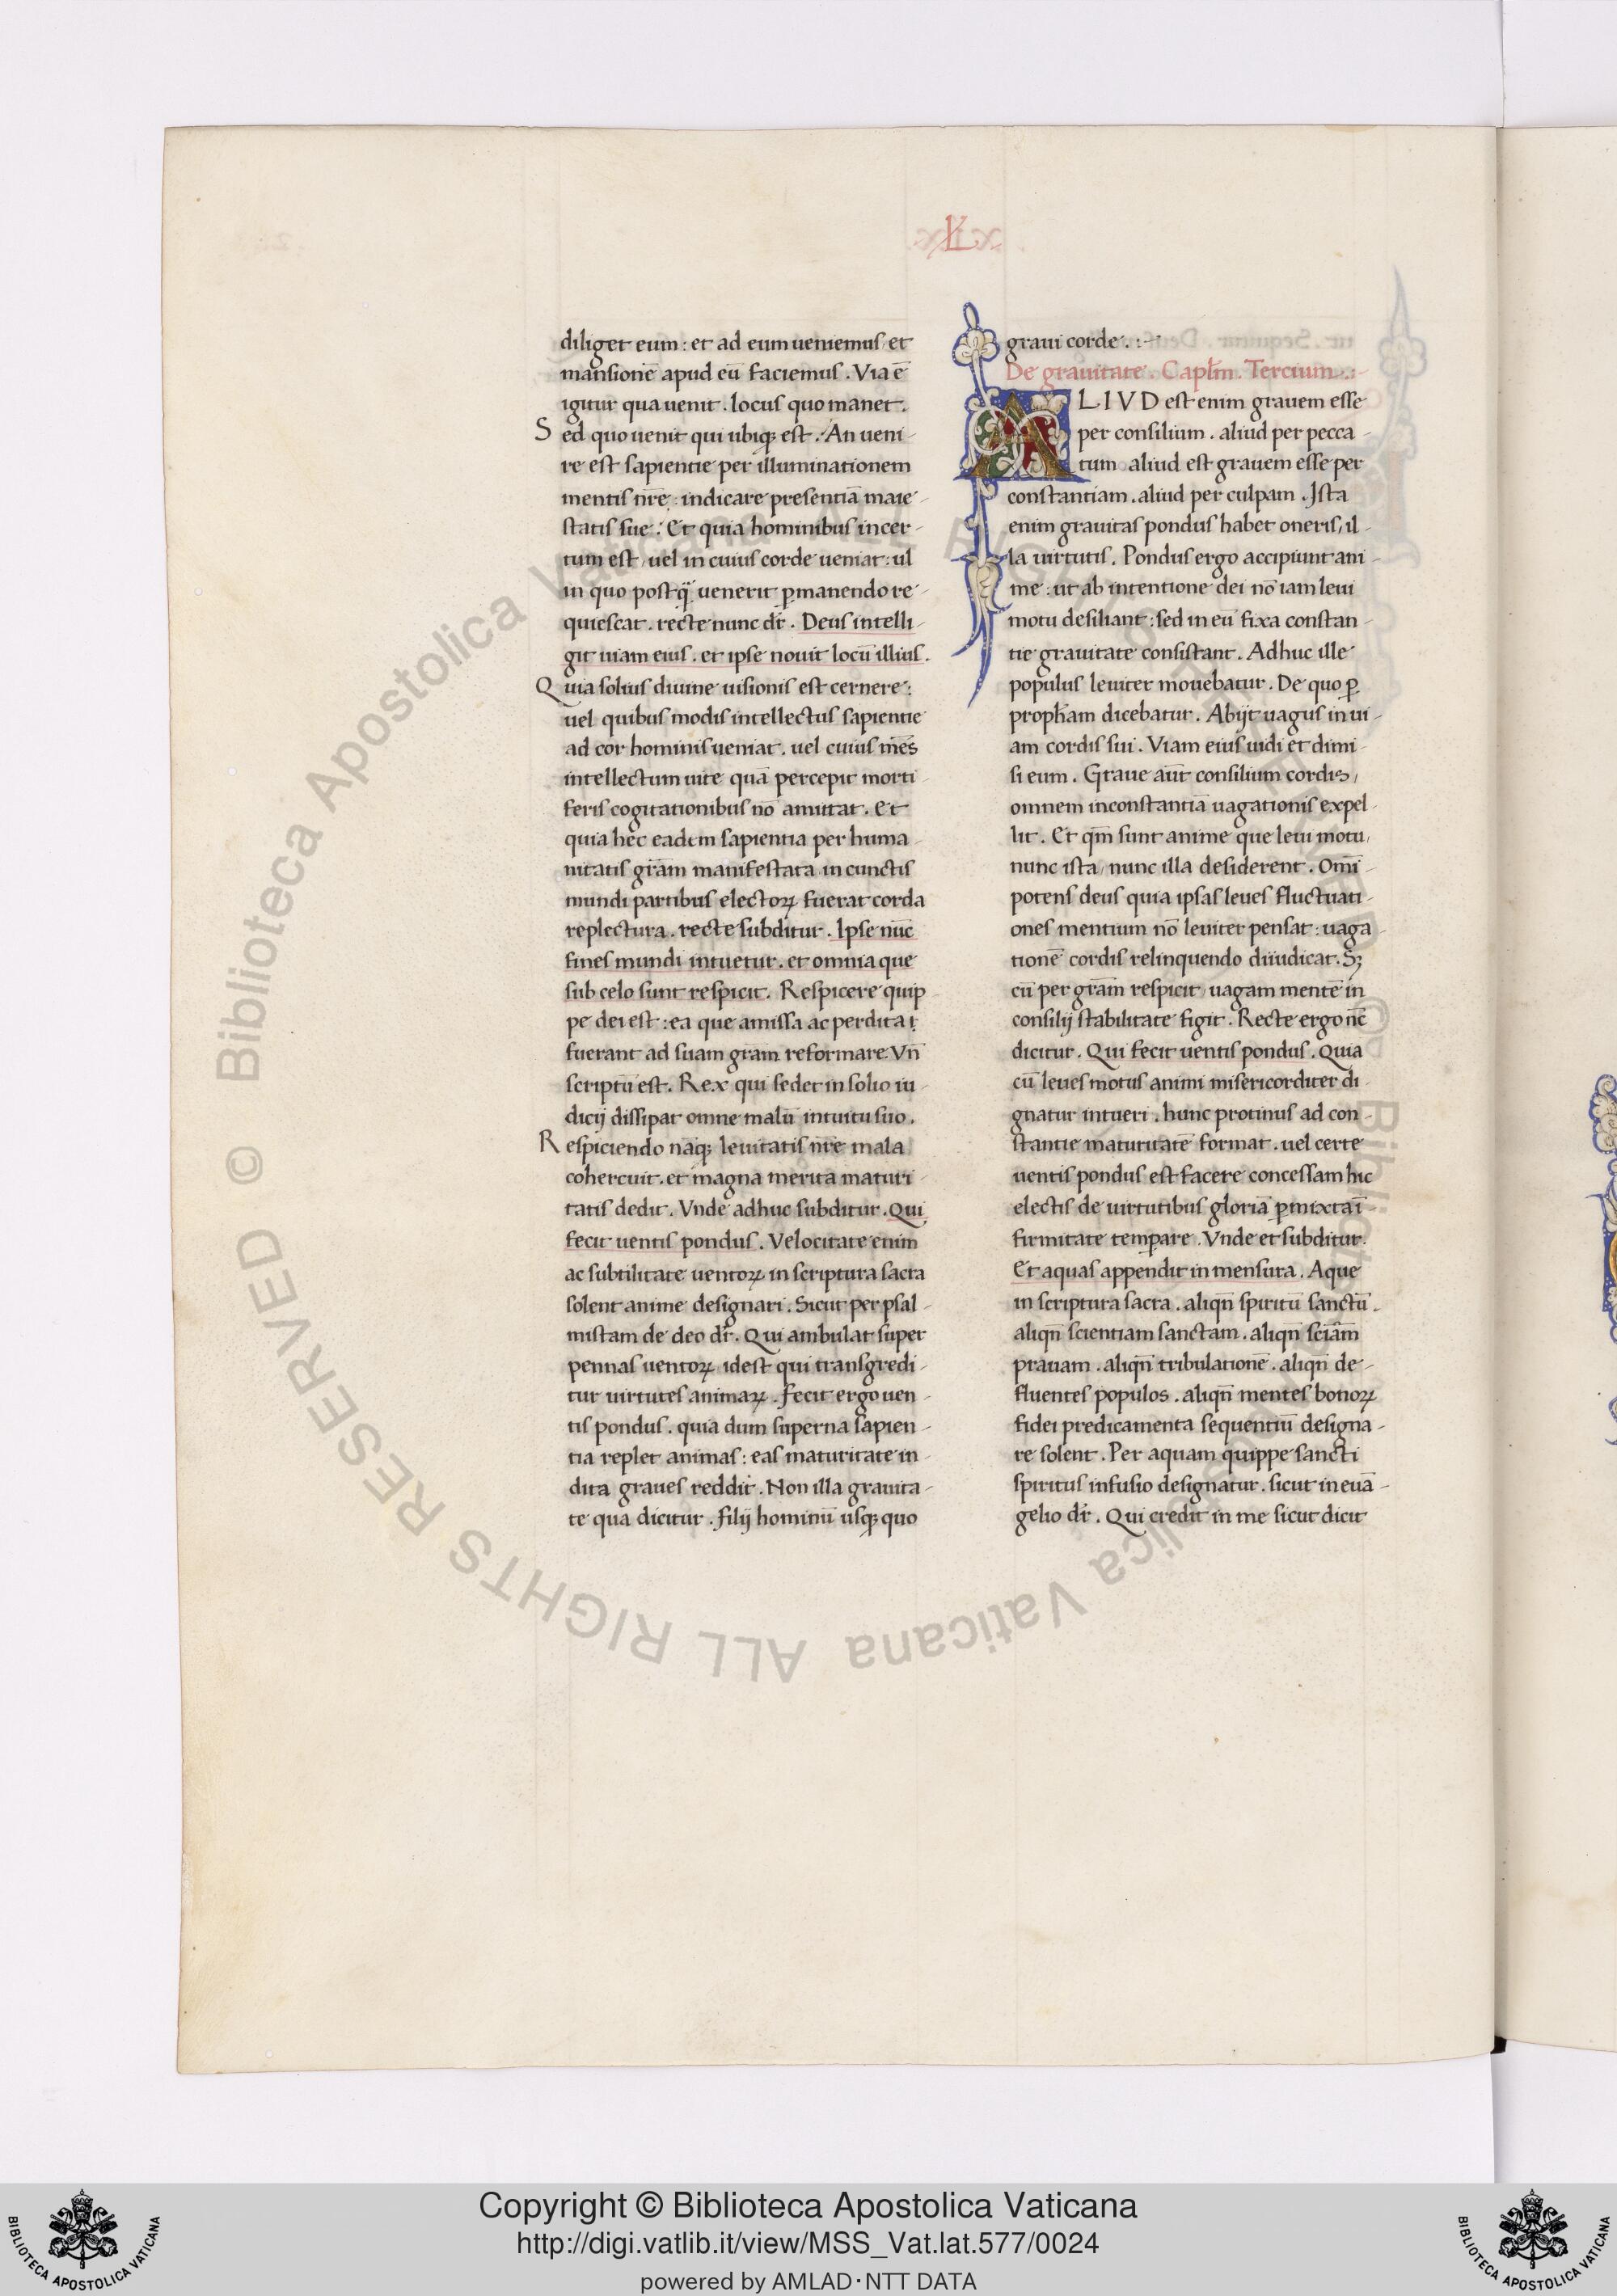 L
diliget eum : et ad eum ueniemus / et
mansionē apud eū faciemus . Via ē
igitur qua uenit . locus quo manet .
Sed quo uenit qui ubiqꝫ est . An ueni-
re est sapientie per illuminationem
mentis nr̄e : indicare presentiā maie-
statis sue . Et quia hominibus incer-
tum est / uel in cuius corde ueniat : ul
in quo postq̄ uenerit ꝑmanendo re-
quiescat . recte nunc dr̄ . Deus intelli-
git uiam eius . et ipse nouit locū illius .
Quia solius diuine uisionis est cernere :
uel quibus modis intellectus sapientie
ad cor hominis ueniat . uel cuius mēs
intellectum uite quā percepit morti-
feris cogitationibus nō amittat . Et
quia hec eadem sapientia per huma-
nitatis grām manifestata in cunctis
mundi partibus electoꝝ fuerat corda
repletura . recte subditur . Ipse nūc
fines mundi intuetur . et omnia que
sub celo sunt respicit . Respicere quip
pe dei est : ea que amissa ac perdita
fuerant ad suam grām reformare . Vn̄
scriptū est . Rex qui sedet in solio iu-
dicij dissipat omne malū intuitu suo .
Respiciendo nāqꝫ leuitatis nr̄e mala
cohercuit . et magna merita maturi-
tatis dedit . Vnde adhuc subditur . Qui
fecit uentis pondus . Velocitate enim
ac subtilitate uentoꝝ in scriptura sacra
solent anime designari . Sicut per psal-
mistam de deo dr̄ . Qui ambulat super
pennas uentoꝝ idest qui transgredi-
tur uirtutes animaꝝ . Fecit ergo uen-
tis pondus . quia dum superna sapien-
tia replet animas : eas maturitate in-
dita graues reddit . Non illa grauita-
te qua dicitur . Filij hominū usqꝫ quo
graui corde . : ~
De grauitate . Capl̄m . Tercium . :-
ALIVD est enim grauem esse
per consilium . aliud per pecca-
tum aliud est grauem esse per
constantiam . aliud per culpam . Ista
enim grauitas pondus habet oneris / il-
la uirtutis . Pondus ergo accipiunt ani-
me : ut ab intentione dei nō iam leui
motu desiliant : sed in eū fixa constan-
tie grauitate consistant . Adhuc ille
populus leuiter mouebatur . De quo ꝑ
proph̄am dicebatur . Abijt uagus in ui-
am cordis sui . Viam eius uidi et dimi-
si eum . Graue aūt consilium cordis /
omnem inconstantiā uagationis expel-
lit . Et qm̄ sunt anime que leui motu /
nunc ista / nunc illa desiderent . Omī-
potens deus quia ipsas leues fluctuati-
ones mentium nō leuiter pensat : uaga-
tionē cordis relinquendo diiudicat . Sꝫ
cū per grām respicit / uagam mentē in
consilij stabilitate figit . Recte ergo nc̄
dicitur . Qui fecit uentis pondus . Quia
cū leues motus animi misericorditer di-
gnatur intueri . hunc protinus ad con-
stantie maturitatē format . uel certe
uentis pondus est facere concessam hic
electis de uirtutibus gloriā ꝑmixta ī-
firmitate temꝑare . Vnde et subditur .
Et aquas appendit in mensura . Aque
in scriptura sacra . aliqn̄ spiritū sanctū .
aliqn̄ scientiam sanctam . aliqn̄ sciām
prauam . aliqn̄ tribulationē . aliqn̄ de-
fluentes populos . aliqn̄ mentes bonoꝝ
fidei predicamenta sequentiū designa-
re solent . Per aquam quippe sancti
spiritus infusio designatur . sicut in euā-
gelio dr̄ . Qui credit in me sicut dicit
© Biblioteca Apostolica Vaticana ALL RIGHTS RESERVED © Biblioteca Apostolica Vaticana ALL RIGHTS RESERVED
BIBLIOTECA APOSTOLICA VATICANA
Copyright © Biblioteca Apostolica Vaticana
http://digi.vatlib.it/view/MSS_Vat.lat.577/0024
powered by AMLAD·NTT DATA
BIBLIOTECA APOSTOLICA VATICANA